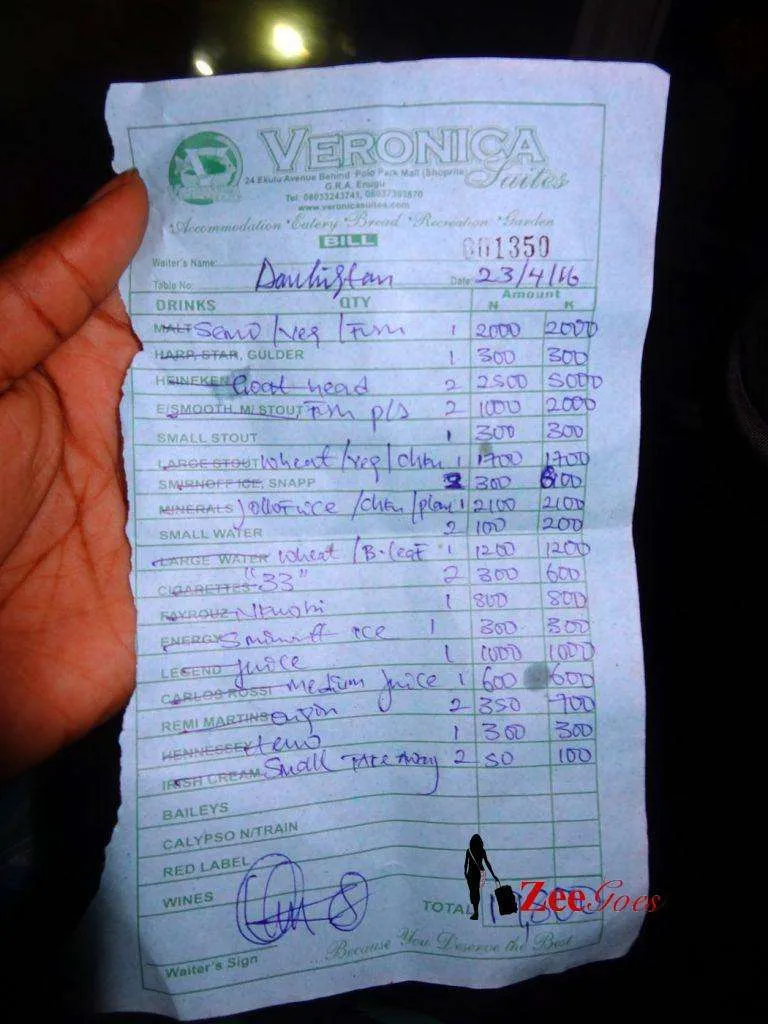 VERONICA
Suites
24 Ekulu Avenue Behind Polo Park Mall (Shoprite)
G.R.A. Enugu
Tel: 08033243741, 08037393870
www.veronicasuites.com
*Accommodation *Eatery *Bread *Recreation *Garden
BILL 001350
Waiter's Name:
Table No: Date: 23/4/16
DRINKS QTY Amount N K
MALT Semo/veg/Fish 1 2000 2000
HARP, STAR, GULDER 1 300 300
HEINEKEN Goat head 2 2500 5000
E/SMOOTH, M/STOUT, Fish p/s 2 1000 2000
SMALL STOUT 1 300 300
LARGE STOUT wheat/veg/chkn 1 1700 1700
SMIRNOFF ICE, SNAPP 2 300 600
MINERALS Jollof rice/chkn/plan 1 2100 2100
SMALL WATER 2 100 200
LARGE WATER wheat/B.leaf 1 1200 1200
CIGARETTES "33" 2 300 600
FAYROUZ Nkwobi 1 800 800
ENERGY Smirnoff ice 1 300 300
LEGEND Juice 1 1000 1000
CARLOS ROSSI medium juice 1 600 600
REMI MARTINS origin 2 350 700
HENNESSEY 1 300 300
IRISH CREAM Small Take Away 2 50 100
BAILEYS
CALYPSO N/TRAIN
RED LABEL
WINES
TOTAL
ZeeGoes
Waiter's Sign
Because You Deserve the Best